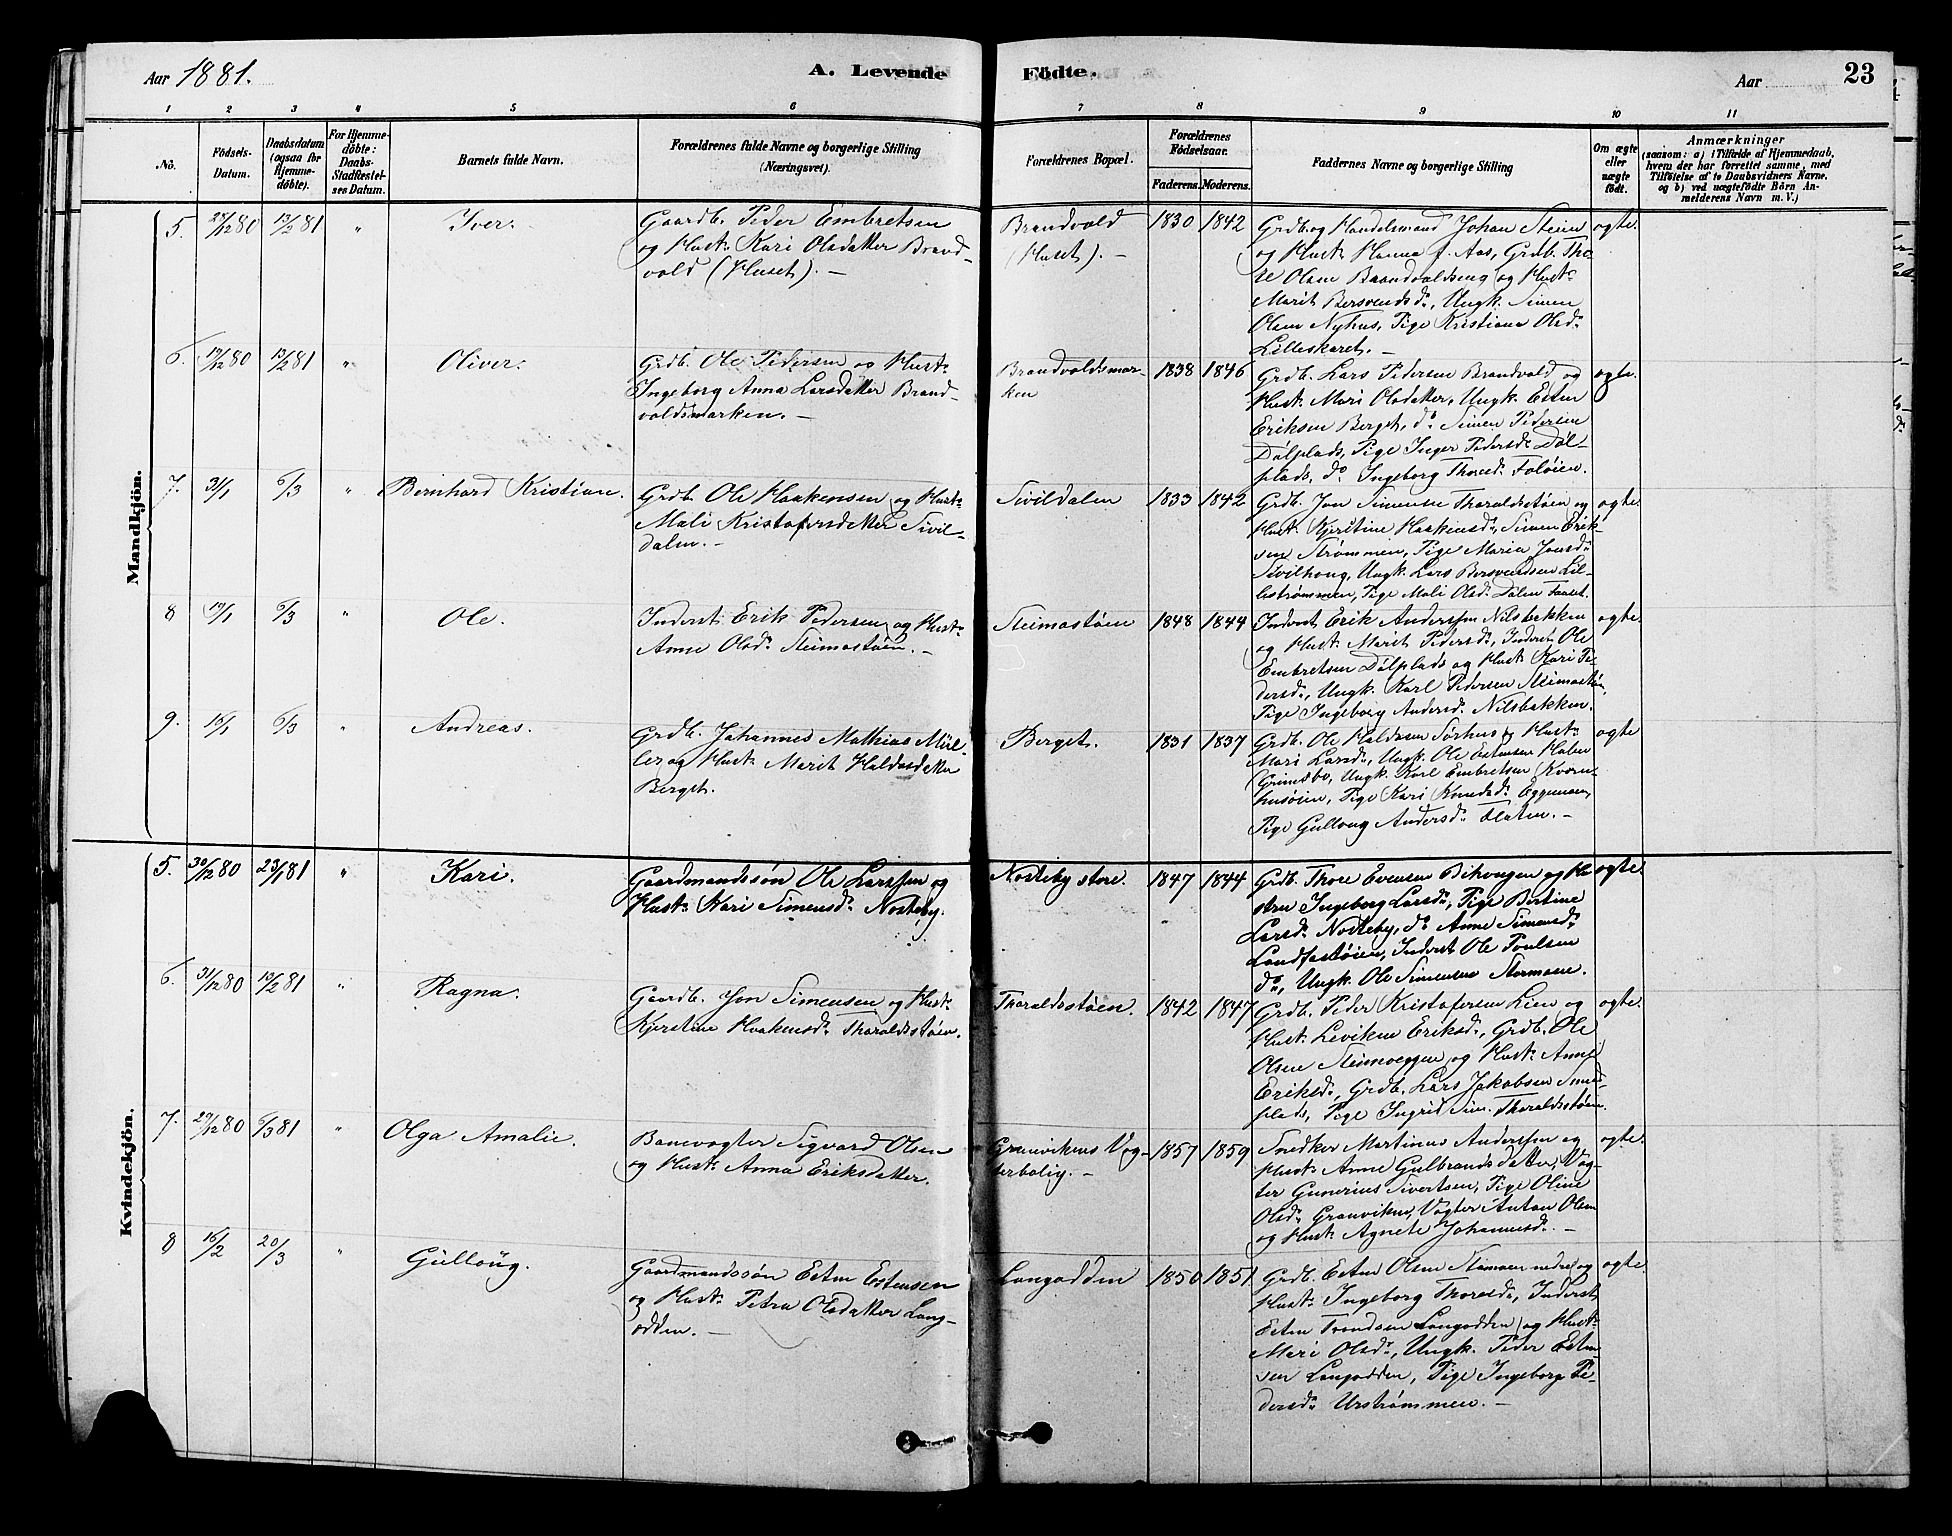 Aar 1881.
A. Levende Födte.
Aar
23
1 2 3 4 5 6 7 8 9 10 11
No.
Födsels-Datum.
Daabsdatum (ogsaa for Hjemme-döbte).
For Hjemme-döbte: Daabs-Stadfæstel-ses Datum.
Barnets fulde Navn.
Forældrenes fulde Navne og borgerlige Stilling (Næringsvei).
Forældrenes Bopæl.
Forældrenes Födselsaar.
Faderens. Moderens.
Faddernes Navne og borgerlige Stilling
Om ægte eller uægte födt.
Anmærkninger
(saasom: a) i Tilfælde af Hjemmedaab,
hvem der har forrettet samme, med
Tilföielse af to Daabsvidners Navne,
og b) ved uægtefödte Börn An-
melderens Navn m. V.)
Mandkjön.
5. 27/12 80 13/2 81 "
Iver.
Gaardb. Peder Embretsen
og Hust. Kari Olsdatter Brand-
vold (Huset). —
Brandvold
(Huset). —
1830 1842
Grdb. og Handelsmand Johan Steien
og Hust. Hanna f. Aas, Grdb. Tho-
re Olsen Brandvoldseng og Hust.
Marit Bersvendsd., Ungk. Simen
Olsen Nyhus, Pige Kristiane Olsd.
Lilleskaret. —
ægte.
6. 19/12 80 13/2 81 "
Oliver.
Grdb. Ole Pedersen og Hust.
Ingeborg Anna Larsdatter Brand-
voldsmarken. —
Brandvoldsmar-
ken
1838 1846
Grdb. Lars Pedersen Brandvold og
Hust. Mari Olsdatter, Ungk. Esten
Eriksen Berget, do. Simen Pedersen
Dølplads, Pige Inger Pedersd. Døl-
plads, do. Ingeborg Thoresd. Foløien.
ægte.
7. 31/1 6/3 "
Bernhard Kristian.
Grdb. Ole Haakensen og Hust.
Mali Kristofersdatter Sivil-
dalen. —
Sivildalen
1833 1842
Grdb. Jon Simensen Tharaldsstøen og
Hust. Kjerstine Haakensd., Simen Erik-
sen Strømmen, Pige Maria Jonsd.
Sivilhaug, Ungk. Lars Bersvendsen Lil-
lestrømmen, Pige Mali Olsd. Dalen Faaset.
ægte.
8 19/1 6/3 "
Ole.
Inderst Erik Pedersen og Hust.
Anne Olsd. Steimostøen. —
Steimostøen
1848 1844
Inderst Erik Anderssen Nilsbakken
og Hust. Marit Pedersd., Inderst Ole
Embretsen Dølplads og Hust. Kari Pe-
dersd., Ungk. Karl Pedersen Steimostøen,
Pige Ingeborg Andersd. Nilsbakken.
ægte.
9. 16/1 6/3 "
Andreas.
Grdb. Johannes Mathias Mül-
ler og Hust. Marit Haldosdatter
Berget.
Berget.
1831 1837
Grdb. Ole Haldosen Sørhus og Hust.
Mari Larsd., Ungk. Ole Estensen
Grimsbo, Ungk. Karl Embretsen Kvern-
husøien, Pige Kari Eggemoen,
Pige Gulloug Andersd. Floten. —
ægte
Kvindekjön.
5. 30/12 80 23/1 81 "
Kari.
Gaardmandssøn Ole Larssen og
Hust. Kari Simensd. Nordeby.
Nordeby store.
1847 1844
Grdb. Thore Evensen Bihaugen og Hu-
stru Ingeborg Larsd., Pige Bertine
Larsd. Nordeby, do. Anne Simensd.
Landfastøien, Inderst Ole Poulsen
do., Ungk. Ole Simensen Stormoen.
ægte.
6. 31/12 80 13/2 81 "
Ragna.
Gaardb. Jon Simensen og Hust.
Kjerstine Haakensd. Tharaldsstøen.
Tharaldsstøen.
1842 1847
Grdb. Peder Kristofersen Lien og
Hust. Leviken Eriksd., Grdb. Ole
Olsen Steimoeggen og Hust. Anne
Eriksd., Grdb. Lars Jakobsen Smed-
plads, Pige Ingrid Sim. Tharaldsstøen.
ægte.
7. 29/12 80 6/3 81 "
Olga Amalie.
Banevogter Sigvard Olsen
og Hust. Anna Eriksdatter.
Granvikens Vog-
terbolig. —
1857 1859
Snedker Martinus Anderssen og
Hust. Anne Gulbrandsdatter, Vog-
ter Gunerius Sivertsen, Pige Oline
Olsd. Granviken, Vogter Anton Olsen
og Hust. Agnete Johannesd. —
ægte.
8 16/2 20/3 "
Gulloug.
Gaardmandssøn Esten Estensen
og Hust. Petra Olsdatter Lang-
odden. —
Langodden
1850 1851
Grdb. Esten Olsen Stamoen nedre og
Hust. Ingeborg Thoresd., Inderst
Esten Trondsen Langodden og Hust.
Mari Olsd., Ungk. Peder Esten-
sen Langodden, Pige Ingeborg Pe-
dersd. Urstrømmen. —
ægte.